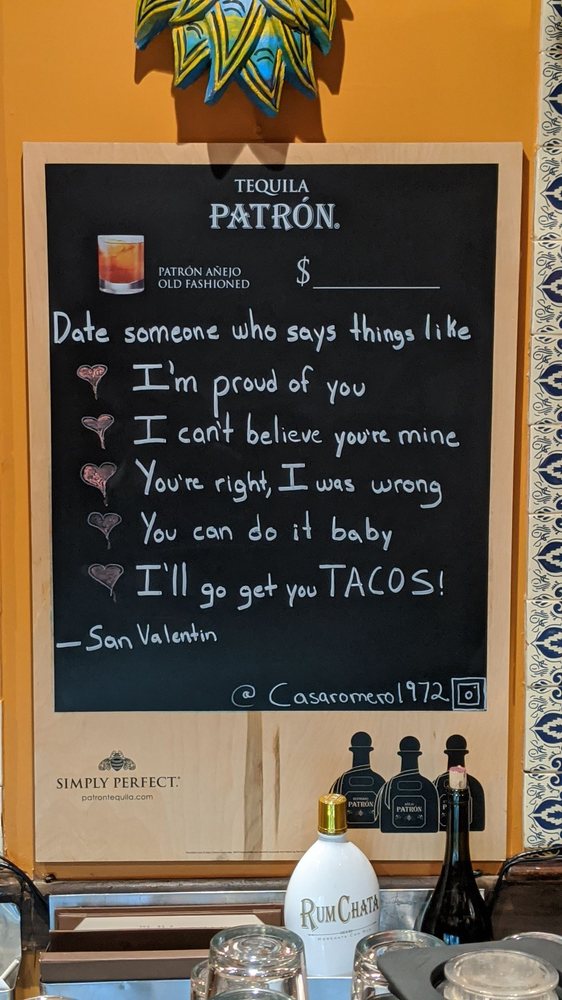 TEQUILA
PATRÓN®
PATRÓN AÑEJO
OLD FASHIONED
$
Date someone who says things like
I'm proud of you
I can't believe you're mine
You're right, I was wrong
You can do it baby
I'll go get you TACOS!
— San Valentin
@ Casaromero1972
SIMPLY PERFECT.
patrontequila.com
PATRÓN
PATRÓN
RUMCHATA